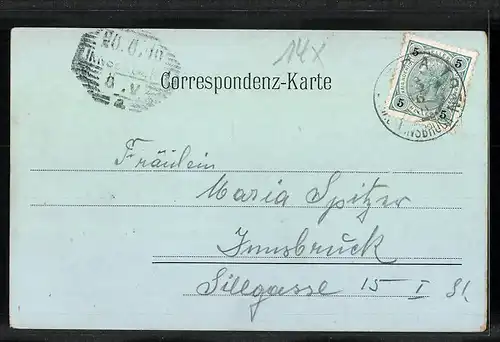 14x
Correspondenz-Karte
5 5
5 5
INNSBRUCK
Fräulein
Maria Spitzer
Innsbruck
Sillgasse 15 I St.